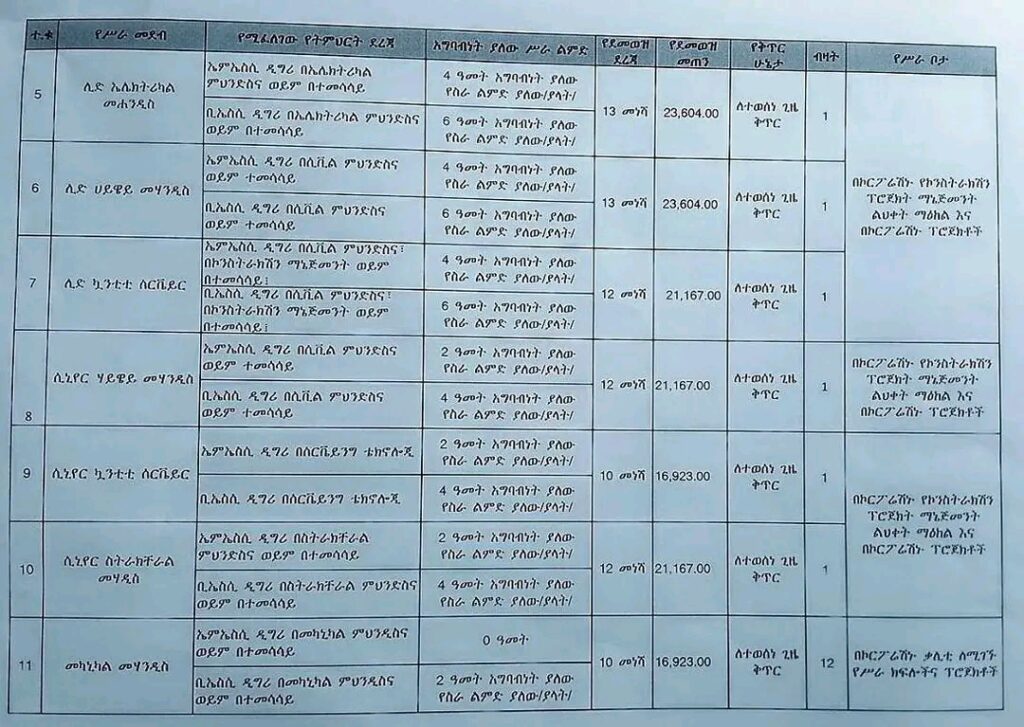 ተ.ቁ
የሥራ መደብ
የሚፈለገው የትምህርት ደረጃ
አግባብነት ያለው ሥራ ልምድ
የደመወዝ
ደረጃ
የደመወዝ
መጠን
የቅጥር
ሁኔታ
ብዛት
የሥራ ቦታ
5
ሊድ ኤሌክትሪካል
መሐንዲስ
ኤምኤስሲ ዲግሪ በኤሌክትሪካል
ምህንድስና ወይም በተመሳሳይ
4 ዓመት አግባብነት ያለው
የስራ ልምድ ያለው/ያላት/
ቢኤስሲ ዲግሪ በኤሌክትሪካል ምህንድስና
ወይም በተመሳሳይ
6 ዓመት አግባብነት ያለው
የስራ ልምድ ያለው/ያላት/
13 መነሻ
23,604.00
ለተወሰነ ጊዜ
ቅጥር
1
በኮርፖሬሽኑ የኮንስትራክሽን
ፕሮጀክት ማኔጅመንት
ልህቀት ማዕከል እና
በኮርፖሬሽኑ ፕሮጀክቶች
6
ሊድ ሀይዌይ መሃንዲስ
ኤምኤስሲ ዲግሪ በሲቪል ምህንድስና
ወይም ተመሳሳይ
4 ዓመት አግባብነት ያለው
የስራ ልምድ ያለው/ያላት/
ቢኤስሲ ዲግሪ በሲቪል ምህንድስና
ወይም ተመሳሳይ
6 ዓመት አግባብነት ያለው
የስራ ልምድ ያለው/ያላት/
13 መነሻ
23,604.00
ለተወሰነ ጊዜ
ቅጥር
1
7
ሊድ ኳንቲቲ ሰርቬይር
ኤምኤስሲ ዲግሪ በሲቪል ምህንድስና፣
በኮንስትራክሽን ማኔጅመንት ወይም
በተመሳሳይ፤
4 ዓመት አግባብነት ያለው
የስራ ልምድ ያለው/ያላት/
ቢኤስሲ ዲግሪ በሲቪል ምህንድስና፣
በኮንስትራክሽን ማኔጅመንት ወይም
በተመሳሳይ፤
6 ዓመት አግባብነት ያለው
የስራ ልምድ ያለው/ያላት/
12 መነሻ
21,167.00
ለተወሰነ ጊዜ
ቅጥር
1
8
ሲኒየር ሃይዌይ መሃንዲስ
ኤምኤስሲ ዲግሪ በሲቪል ምህንድስና
ወይም ተመሳሳይ
2 ዓመት አግባብነት ያለው
የስራ ልምድ ያለው/ያላት/
ቢኤስሲ ዲግሪ በሲቪል ምህንድስና
ወይም ተመሳሳይ
4 ዓመት አግባብነት ያለው
የስራ ልምድ ያለው/ያላት/
12 መነሻ
21,167.00
ለተወሰነ ጊዜ
ቅጥር
1
በኮርፖሬሽኑ የኮንስትራክሽን
ፕሮጀክት ማኔጅመንት
ልህቀት ማዕከል እና
በኮርፖሬሽኑ ፕሮጀክቶች
9
ሲኒየር ኳንቲቲ ሰርቬይር
ኤምኤስሲ ዲግሪ በሰርቬይንግ ቴክኖሎጂ
2 ዓመት አግባብነት ያለው
የስራ ልምድ ያለው/ያላት/
ቢኤስሲ ዲግሪ በሰርቬይንግ ቴክኖሎጂ
4 ዓመት አግባብነት ያለው
የስራ ልምድ ያለው/ያላት/
10 መነሻ
16,923.00
ለተወሰነ ጊዜ
ቅጥር
1
በኮርፖሬሽኑ የኮንስትራክሽን
ፕሮጀክት ማኔጅመንት
ልህቀት ማዕከል እና
በኮርፖሬሽኑ ፕሮጀክቶች
10
ሲኒየር ስትራክቸራል
መሃዲስ
ኤምኤስሲ ዲግሪ በስትራክቸራል
ምህንድስና ወይም በተመሳሳይ
2 ዓመት አግባብነት ያለው
የስራ ልምድ ያለው/ያላት/
ቢኤስሲ ዲግሪ በስትራክቸራል ምህንድስና
ወይም በተመሳሳይ
4 ዓመት አግባብነት ያለው
የስራ ልምድ ያለው/ያላት/
12 መነሻ
21,167.00
ለተወሰነ ጊዜ
ቅጥር
1
11
መካኒካል መሃንዲስ
ኤምኤስሲ ዲግሪ በመካኒካል ምህንዲስና
ወይም በተመሳሳይ
0 ዓመት
ቢኤስሲ ዲግሪ በመካኒካል ምህንዲስና
ወይም በተመሳሳይ
2 ዓመት አግባብነት ያለው
የስራ ልምድ ያለው/ያላት/
10 መነሻ
16,923.00
ለተወሰነ ጊዜ
ቅጥር
12
በኮርፖሬሽኑ ቃሊቲ ለሚገኙ
የሥራ ክፍሎችና ፕሮጀክቶች